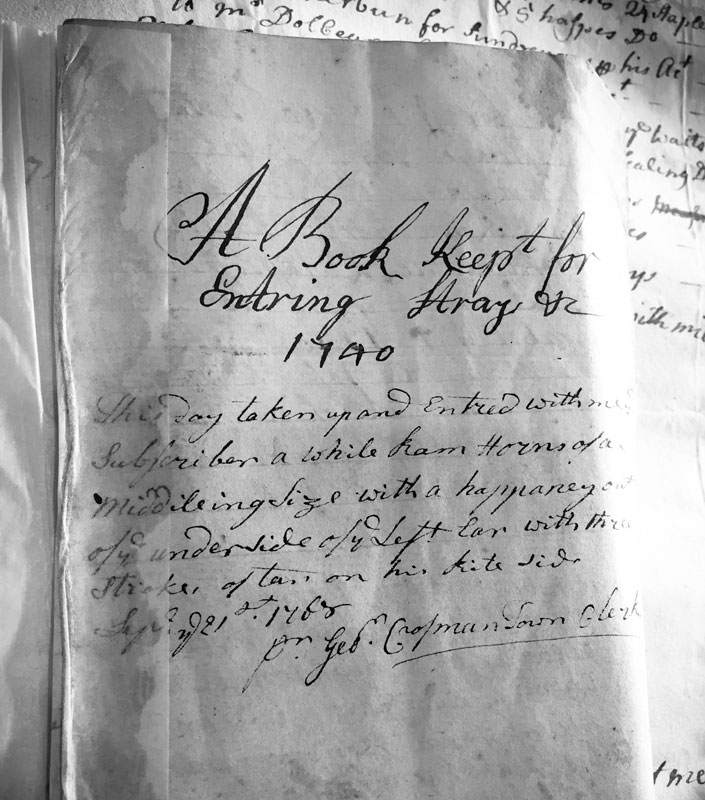 to Mr Dolbeare for Sundreys
& 5 haspes Do
his Act
ye waits
A Book Keept for
Entring Strays &c
1740
This day taken up and Entred with me
Subscriber a while Ram Horns of a
Middileing Size with a happaney out
of ye under side of ye Left Ear with three
Strokes of tarr on his Rite side
Sepr ye 21st 1768
pr Geo. Crosman Town Clerk